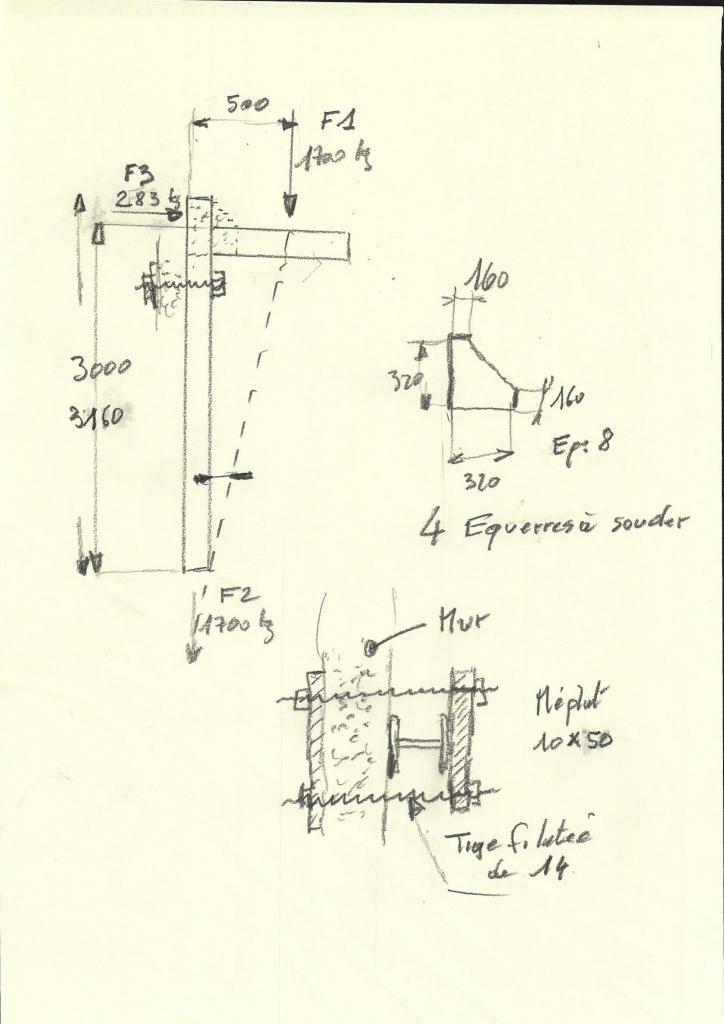 500
F1
1700 kg
F3
283 kg
160
3000
320
160
3160
Ep: 8
320
4 Equerres à souder
F2
1700 kg
Mur
Méplat
10 x 50
Tige filetée
de 14